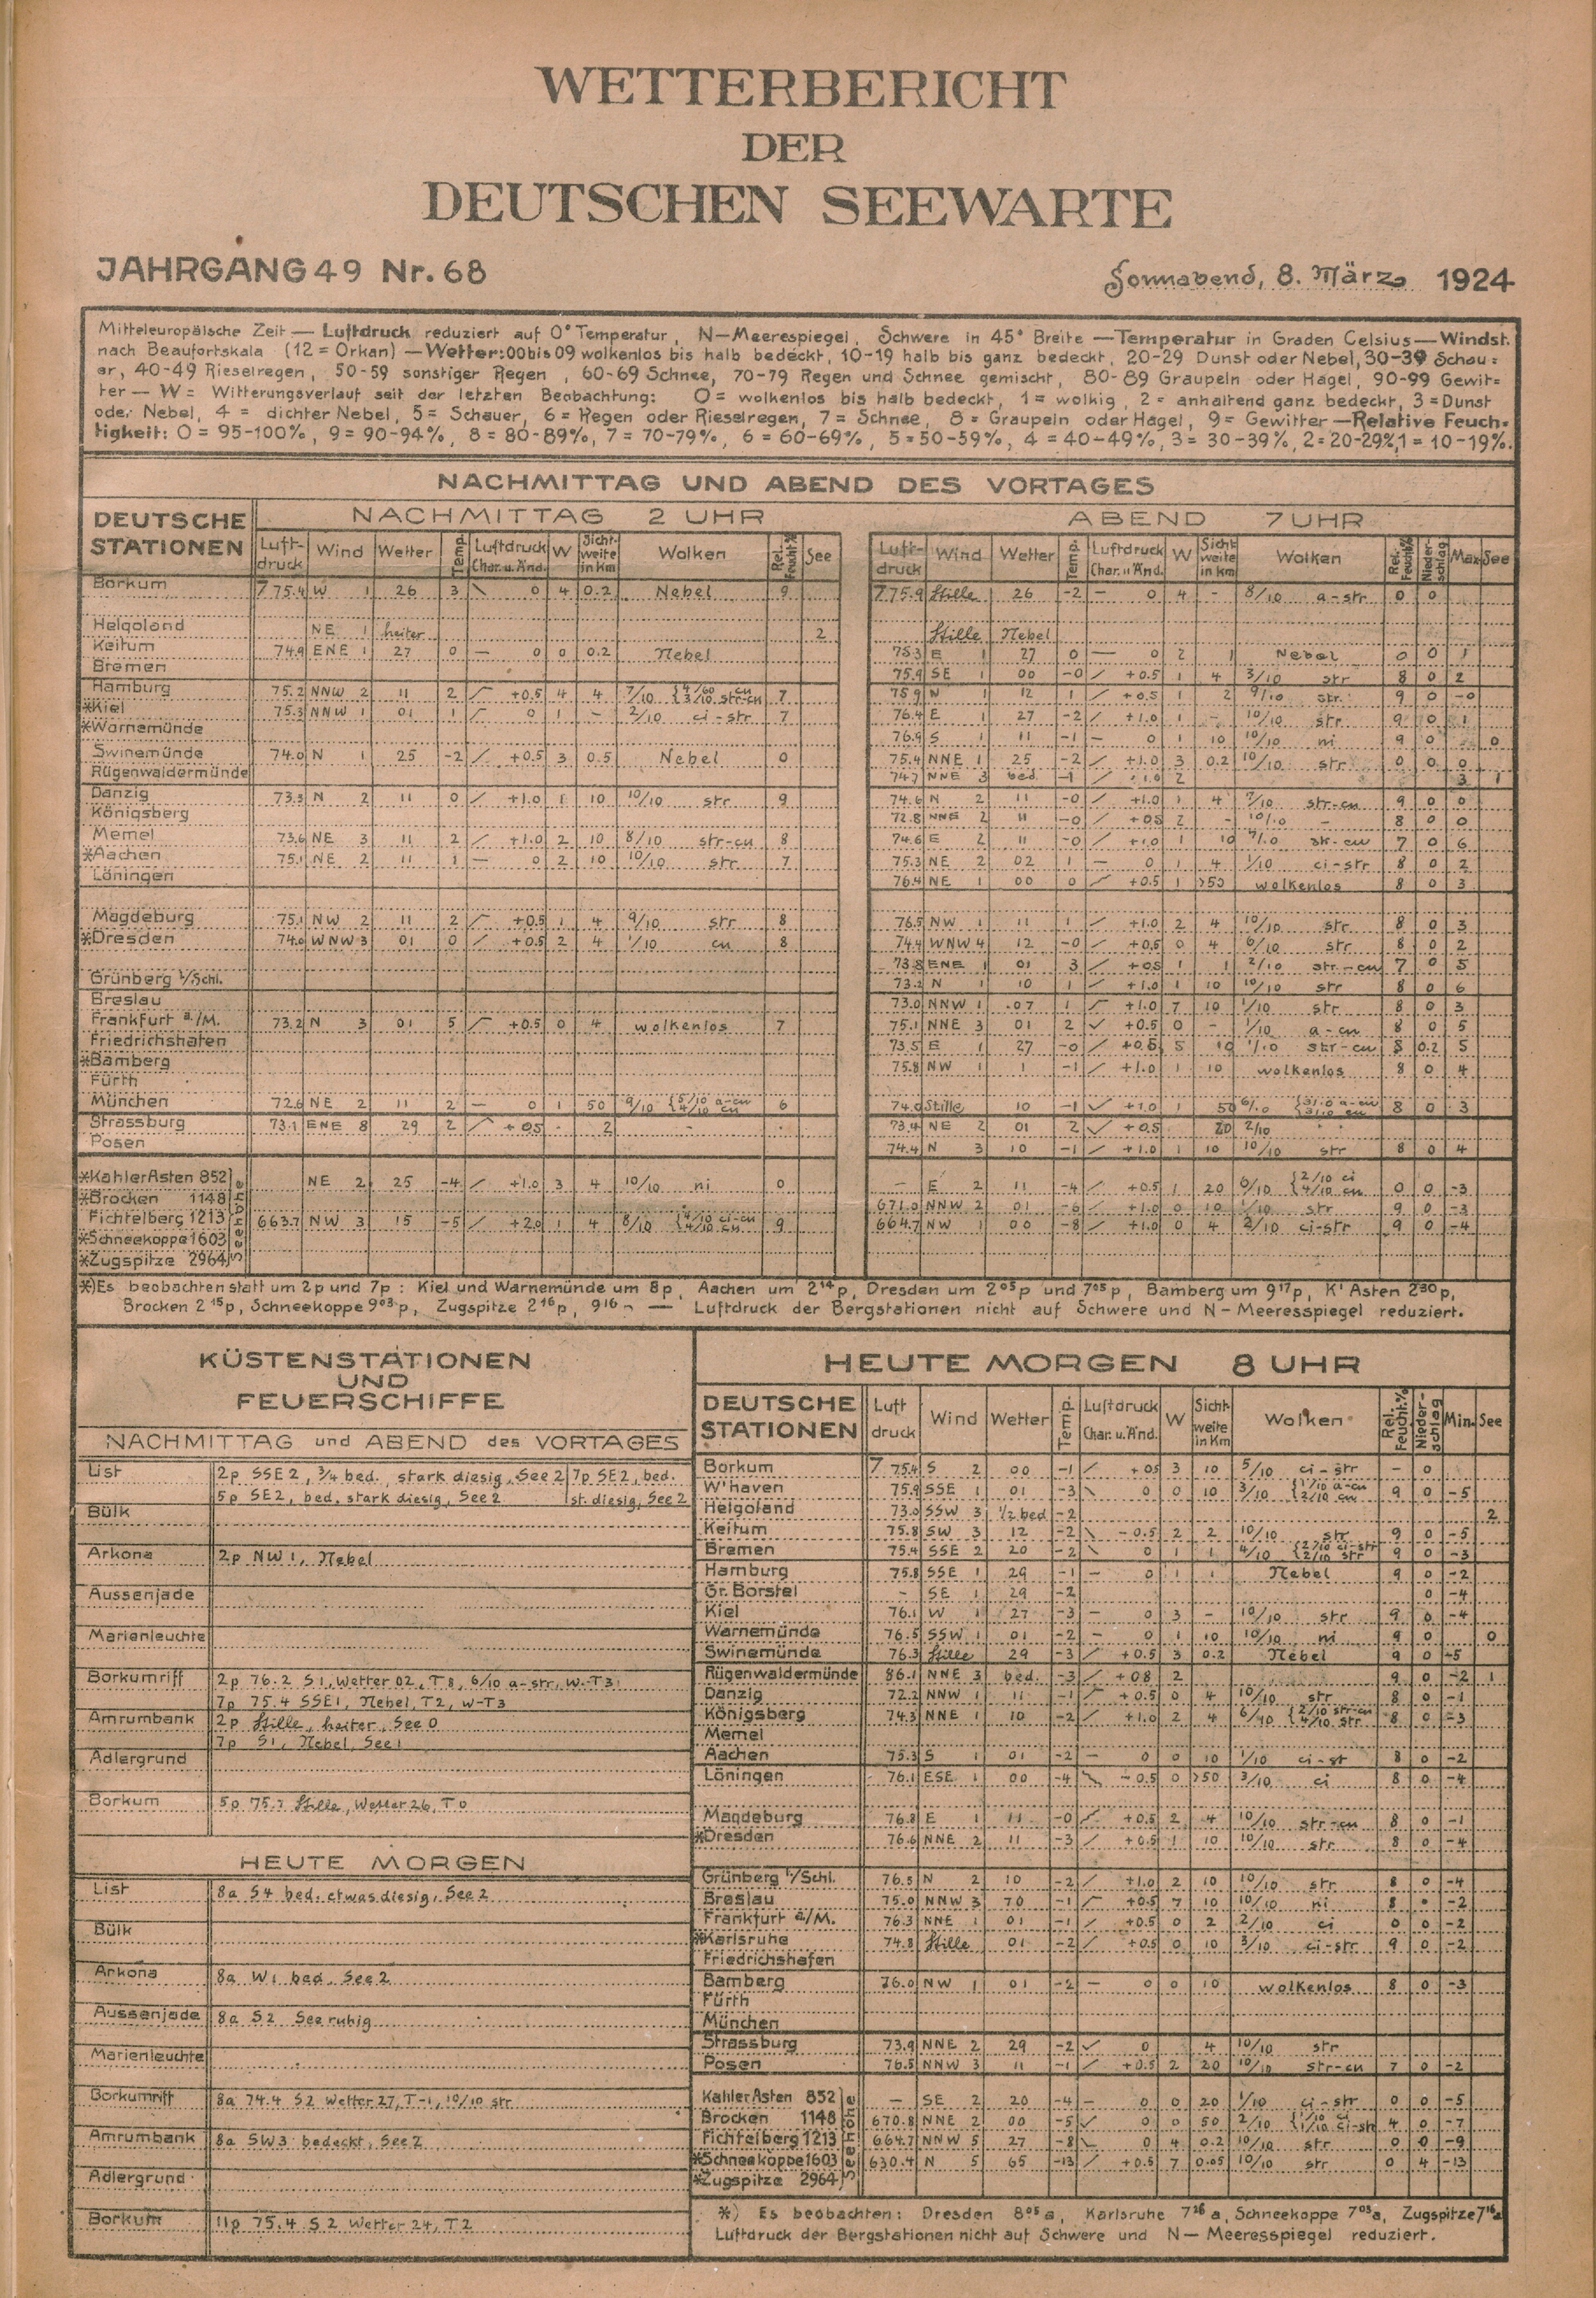 WETTERBERICHT
DER
DEUTSCHEN SEEWARTE
JAHRGANG 49 Nr. 68
Sonnabend, 8. März 1924
Mitteleuropäische Zeit — Luftdruck reduziert auf 0° Temperatur, N—Meerespiegel, Schwere in 45° Breite — Temperatur in Graden Celsius — Windst.
nach Beaufortskala (12 = Orkan) — Wetter: 00 bis 09 wolkenlos bis halb bedeckt, 10-19 halb bis ganz bedeckt, 20-29 Dunst oder Nebel, 30-39 Schau=
er, 40-49 Rieselregen, 50-59 sonstiger Regen, 60-69 Schnee, 70-79 Regen und Schnee gemischt, 80-89 Graupeln oder Hagel, 90-99 Gewit=
ter — W = Witterungsverlauf seit der letzten Beobachtung: 0 = wolkenlos bis halb bedeckt, 1 = wolkig, 2 = anhaltend ganz bedeckt, 3 = Dunst
oder Nebel, 4 = dichter Nebel, 5 = Schauer, 6 = Regen oder Rieselregen, 7 = Schnee, 8 = Graupeln oder Hagel, 9 = Gewitter — Relative Feuch=
tigkeit: 0 = 95-100%, 9 = 90-94%, 8 = 80-89%, 7 = 70-79%, 6 = 60-69%, 5 = 50-59%, 4 = 40-49%, 3 = 30-39%, 2 = 20-29%, 1 = 10-19%.
NACHMITTAG UND ABEND DES VORTAGES
DEUTSCHE STATIONEN
NACHMITTAG 2 UHR
ABEND 7 UHR
Luft-druck Wind Wetter Temp. Luftdruck Char. u. Änd. W Sicht-weite in Km Wolken Rel. Feucht.% See
Luft-druck Wind Wetter Temp. Luftdruck Char. u. Änd. W Sicht-weite in Km Wolken Rel. Feucht.% Nieder-schlag Max See
Borkum 775.4 W 1 26 3 0 4 0.2 Nebel 9 775.9 Stille 26 -2 — 0 4 - 8/10 a-str 0 0
Helgoland NE 1 heiter 2 Stille Nebel
Keitum 74.9 ENE 1 27 0 — 0 0 0.2 Nebel 75.3 E 1 27 0 — 0 2 1 Nebel 0 0 1
Bremen 75.9 SE 1 00 -0 +0.5 1 4 3/10 str 8 0 2
Hamburg 75.2 NNW 2 11 2 +0.5 4 4 7/10 7 75.9 N 1 12 1 +0.5 1 2 9/10 str 9 0 -0
*Kiel 75.3 NNW 1 01 1 0 1 - 2/10 ci-str 7 76.4 E 1 27 -2 +1.0 1 - 10/10 str 9 0 1
*Warnemünde 76.9 S 1 11 -1 — 0 1 10 10/10 ni 9 0 0
Swinemünde 74.0 N 1 25 -2 +0.5 3 0.5 Nebel 0 75.4 NNE 1 25 -2 +1.0 3 0.2 10/10 str 0 0 0
Rügenwaldermünde 74.7 NNE 3 bed. -1 +1.0 2 3 1
Danzig 73.3 N 2 11 0 +1.0 1 10 10/10 str 9 74.6 N 2 11 -0 +1.0 1 4 7/10 str-cu 9 0 0
Königsberg 72.8 NNE 2 11 -0 +0.5 2 - 10/10 - 8 0 0
Memel 73.6 NE 3 11 2 +1.0 2 10 8/10 str-cu 8 74.6 E 2 11 -0 +1.0 1 10 str-cu 7 0 6
*Aachen 75.1 NE 2 11 1 — 0 2 10 10/10 str 7 75.3 NE 2 02 1 — 0 1 4 1/10 ci-str 8 0 2
Löningen 76.4 NE 1 00 0 +0.5 1 >50 wolkenlos 8 0 3
Magdeburg 75.1 NW 2 11 2 +0.5 1 4 9/10 str 8 76.5 NW 1 11 1 +1.0 2 4 10/10 str 8 0 3
*Dresden 74.0 WNW 3 01 0 +0.5 2 4 1/10 cu 8 74.4 WNW 4 12 -0 +0.5 0 4 6/10 str 8 0 2
73.8 ENE 1 01 3 +0.5 1 1 2/10 str-cu 7 0 5
Grünberg i/Schl. 73.2 N 1 10 1 +1.0 1 10 10/10 str 8 0 6
Breslau 73.0 NNW 1 07 1 +1.0 7 10 1/10 str 8 0 3
Frankfurt a./M. 73.2 N 3 01 5 +0.5 0 4 wolkenlos 7 75.1 NNE 3 01 2 +0.5 0 - 1/10 a-cu 8 0 5
Friedrichshafen 73.5 E 1 27 -0 +0.5 5 10 str-cu 8 0.2 5
*Bamberg 75.8 NW 1 1 -1 +1.0 1 10 wolkenlos 8 0 4
Fürth
München 72.6 NE 2 11 2 — 0 1 50 9/10 {5/10 a-cu 4/10 cu 6 74.0 Stille 10 -1 +1.0 1 50 {3/10 a-cu 3/10 cu 8 0 3
Strassburg 73.1 ENE 8 29 2 +0.5 - 2 73.4 NE 2 01 2 +0.5 20 2/10
Posen 74.4 N 3 10 -1 +1.0 1 10 10/10 str 8 0 4
Seehöhe
*Kahler Asten 852 NE 2 25 -4 +1.0 3 4 10/10 ni 0 — E 2 11 -4 +0.5 1 20 6/10 {2/10 ci 4/10 cu 0 0 -3
*Brocken 1148 671.0 NNW 2 01 -6 +1.0 0 10 1/10 str 9 0 -3
Fichtelberg 1213 663.7 NW 3 15 -5 +2.0 1 4 8/10 {4/10 ci-cu 4/10 cu 9 664.7 NW 1 00 -8 +1.0 0 4 2/10 ci-str 9 0 -4
*Schneekoppe 1603
*Zugspitze 2964
*) Es beobachten statt um 2p und 7p: Kiel und Warnemünde um 8p, Aachen um 2 14 p, Dresden um 2 05 p und 7 05 p, Bamberg um 9 17 p, K' Asten 2 30 p,
Brocken 2 15 p, Schneekoppe 9 03 p, Zugspitze 2 16 p, 9 16 — Luftdruck der Bergstationen nicht auf Schwere und N—Meeresspiegel reduziert.
KÜSTENSTATIONEN
UND
FEUERSCHIFFE
NACHMITTAG und ABEND des VORTAGES
List 2p SSE 2, 3/4 bed. stark diesig, See 2 7p SE 2, bed.
5p SE 2, bed. stark diesig, See 2 st. diesig, See 2
Bülk
Arkona 2p NW 1, Nebel
Aussenjade
Marienleuchte
Borkumriff 2p 76.2 S 1, Wetter 02, T 8, 6/10 a-str, W-T 3
7p 75.4 SSE 1, Nebel, T 2, W-T 3
Amrumbank 2p Stille, heiter, See 0
7p S 1, Nebel, See 1
Adlergrund
Borkum 5p Stille, Wetter 26, T 0
HEUTE MORGEN
List 8a S 4 bed. etwas diesig, See 2
Bülk
Arkona 8a W 1 bed. See 2
Aussenjade 8a S 2 See ruhig
Marienleuchte
Borkumriff 8a 74.4 S 2 Wetter 27, T-1, 10/10 str
Amrumbank 8a SW 3 bedeckt, See 2
Adlergrund
Borkum 11p 75.4 S 2 Wetter 24, T 2
HEUTE MORGEN 8 UHR
DEUTSCHE STATIONEN Luft druck Wind Wetter Temp. Luftdruck Char. u. Änd. W Sicht-weite in Km Wolken Rel. Feucht.% Nieder-schlag Min. See
Borkum 775.4 S 2 00 -1 +0.5 3 10 5/10 ci-str - 0
W'haven 75.9 SSE 1 01 -3 0 0 10 3/10 {1/10 a-cu 2/10 cu 9 0 -5
Helgoland 73.0 SSW 3 1/2 bed -2 2
Keitum 75.8 SW 3 12 -2 -0.5 2 2 10/10 str 9 0 -5
Bremen 75.4 SSE 2 20 -2 0 1 1 4/10 {2/10 ci-str 2/10 str 9 0 -3
Hamburg 75.8 SSE 1 29 -1 — 0 1 1 Nebel 9 0 -2
Gr. Borstel - SE 1 29 -2 0 -4
Kiel 76.1 W 1 27 -3 — 0 3 - 10/10 str 9 0 -4
Warnemünde 76.5 SSW 1 01 -2 — 0 1 10 10/10 ni 9 0 0
Swinemünde 76.3 Stille 29 -3 +0.5 3 0.2 Nebel 9 0 -5
Rügenwaldermünde 86.1 NNE 3 bed. -3 +0.8 2 9 0 -2 1
Danzig 72.2 NNW 1 11 -1 +0.5 0 4 10/10 str 8 0 -1
Königsberg 74.3 NNE 1 10 -2 +1.0 2 4 6/10 {2/10 str-cu 4/10 str 8 0 -3
Memel
Aachen 75.3 S 1 01 -2 — 0 0 10 1/10 ci-st 8 0 -2
Löningen 76.1 ESE 1 00 -4 -0.5 0 >50 3/10 ci 8 0 -4
Magdeburg 76.8 E 1 11 -0 +0.5 2 4 10/10 str-cu 8 0 -1
*Dresden 76.6 NNE 2 11 -3 +0.5 1 10 10/10 str 8 0 -4
Grünberg i/Schl. 76.5 N 2 10 -2 +1.0 2 10 10/10 str 8 0 -4
Breslau 75.0 NNW 3 70 -1 +0.5 7 10 10/10 ni 8 -2
Frankfurt a/M. 76.3 NNE 1 01 -1 +0.5 0 2 2/10 ci 0 0 -2
*Karlsruhe 74.8 Stille 01 -2 +0.5 0 10 3/10 ci-str 9 0 -2
Friedrichshafen
Bamberg 76.0 NW 1 01 -2 — 0 0 10 wolkenlos 8 0 -3
Fürth
München
Strassburg 73.9 NNE 2 29 -2 0 4 10/10 str
Posen 76.5 NNW 3 11 -1 +0.5 2 20 10/10 str-cu 7 0 -2
Seehöhe
Kahler Asten 852 — SE 2 20 -4 — 0 0 20 1/10 ci-str 0 0 -5
Brocken 1148 670.8 NNE 2 00 -5 0 0 50 2/10 {1/10 ci 1/10 ci-str 4 0 -7
Fichtelberg 1213 664.7 NNW 5 27 -8 0 4 0.2 10/10 str 0 0 -9
*Schneekoppe 1603 630.4 N 5 65 -13 +0.5 7 0.05 10/10 str 0 4 -13
*Zugspitze 2964
*) Es beobachten: Dresden 8 05 a, Karlsruhe 7 26 a, Schneekoppe 7 03 a, Zugspitze 7 16 a
Luftdruck der Bergstationen nicht auf Schwere und N—Meeresspiegel reduziert.